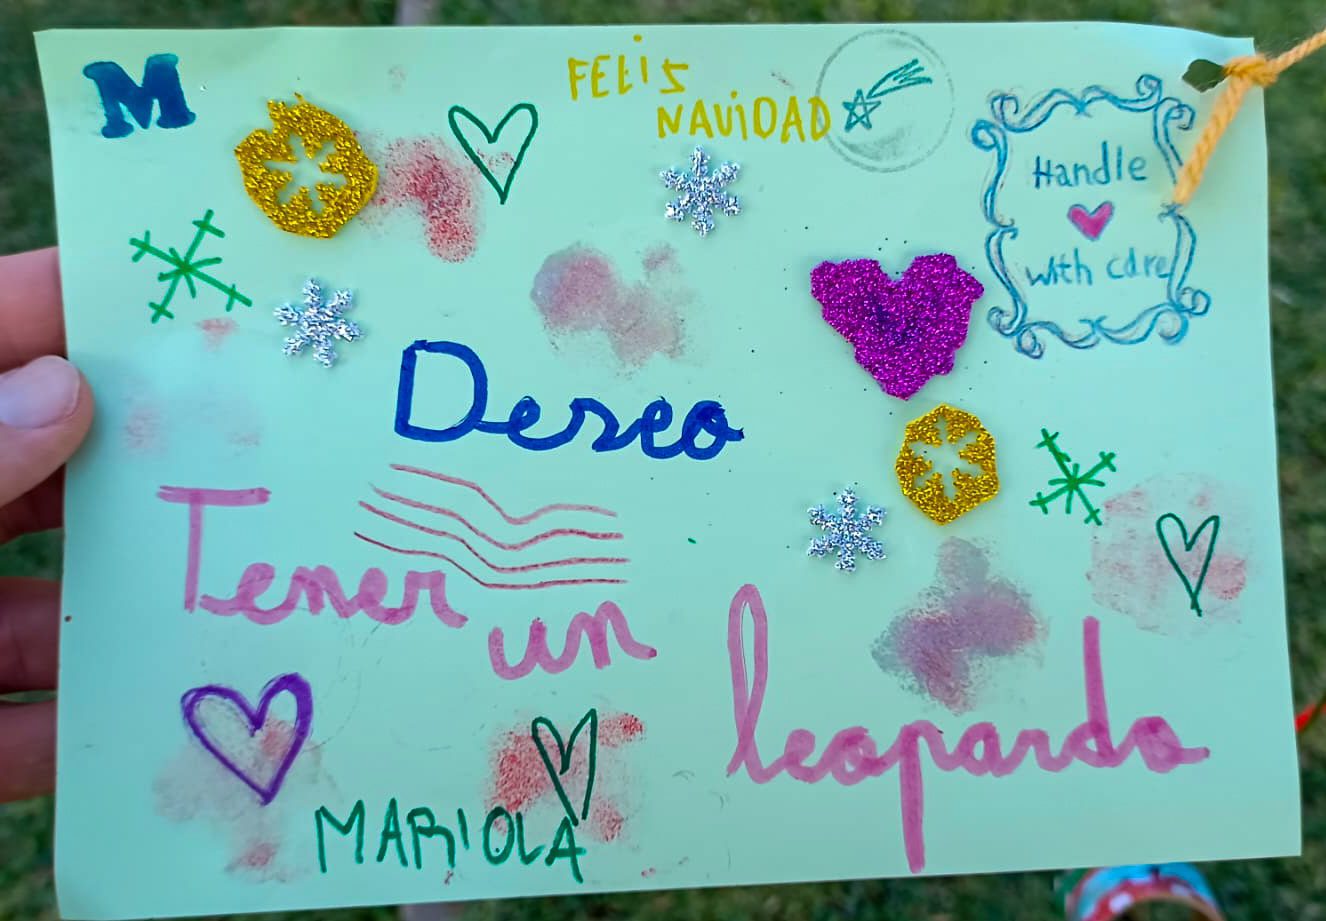 M
FELIS
NAViDAD
Handle
with care
Deseo
Tener un
leopardo
MARIOLA